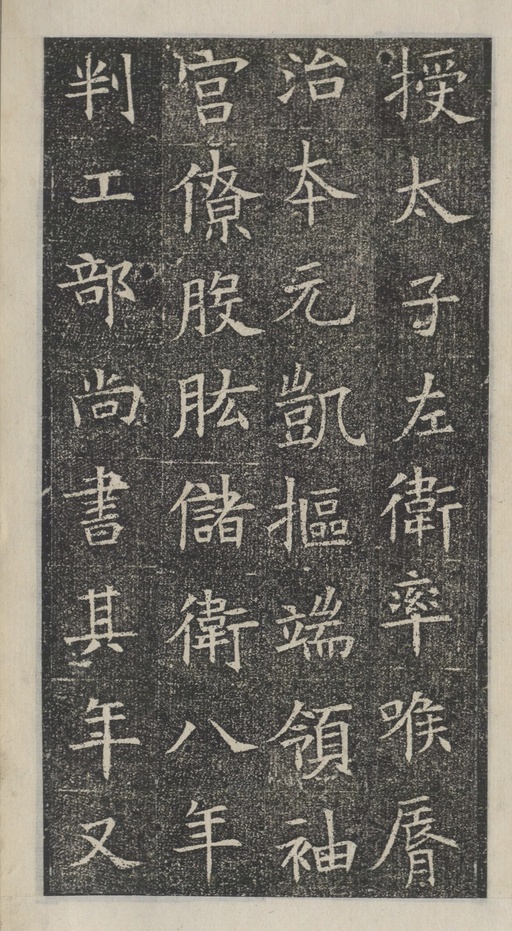 授太子左衛率喉脣
治本元凱摳端領袖
官僚股肱儲衛八年
判工部尚書其年又